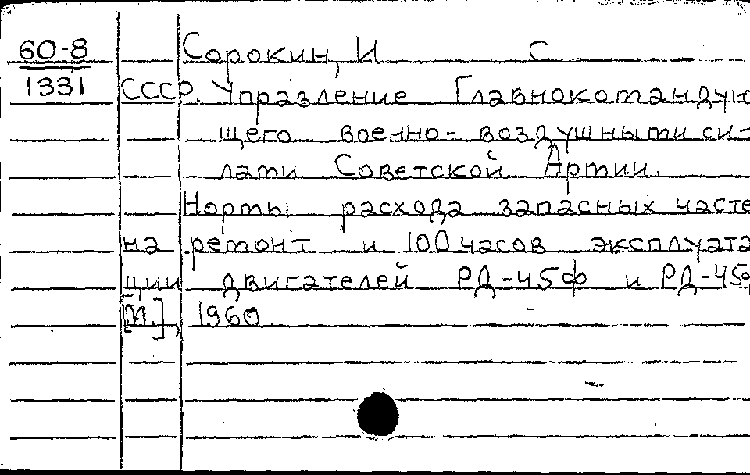 60-8 Сорокин, И С
1331 СССР. Управление Главнокомандую
щего военно-воздушными си-
лами Советской Армии.
Нормы расхода запасных часте
на ремонт и 100 часов эксплуата
ции двигателей РД-45Ф и РД-45Ф
[М.], 1960